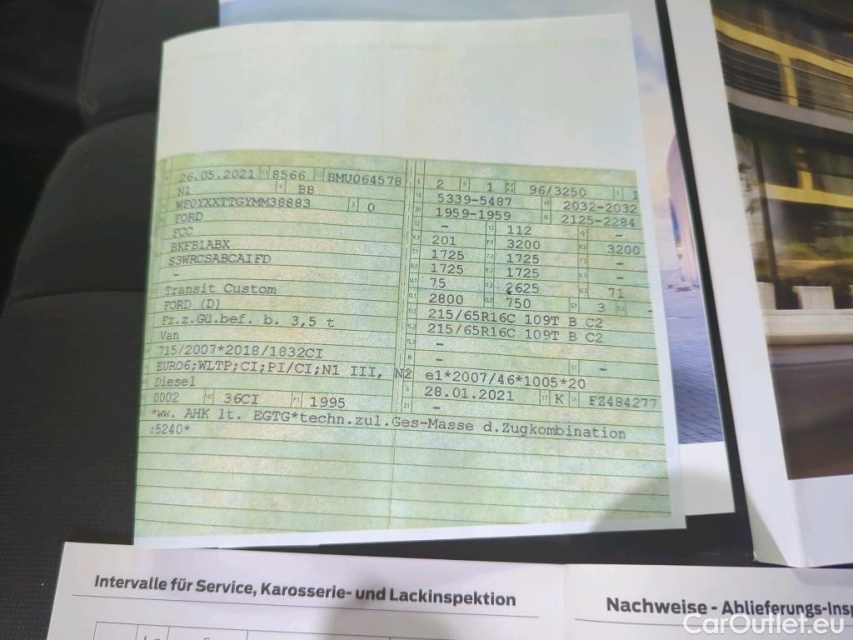 26.05.2021 8566 BMU064578
N1 BB
WF0YXXTTGYMM38883 0
FORD
FCC
BKFB1ABX
S3WRCSABCAIFD
-
Transit Custom
FORD (D)
Fz.z.Gü.bef. b. 3,5 t
Van
715/2007*2018/1832CI
EURO6;WLTP;CI;PI/CI;N1 III, N2
Diesel
0002 36CI 1995
2 1 96/3250 1
5339-5487 2032-2032
1959-1959 2125-2284
- 112 -
201 3200 3200
1725 1725 -
1725 1725 -
75 2625 71
2800 750 3 -
215/65R16C 109T B C2
215/65R16C 109T B C2
-
- -
e1*2007/46*1005*20
28.01.2021 K FZ484277
-
*ww. AHK lt. EGTG*techn.zul.Ges-Masse d.Zugkombination
:5240*
Intervalle für Service, Karosserie- und Lackinspektion
Nachweise - Ablieferungs-Insp
CarOutlet.eu